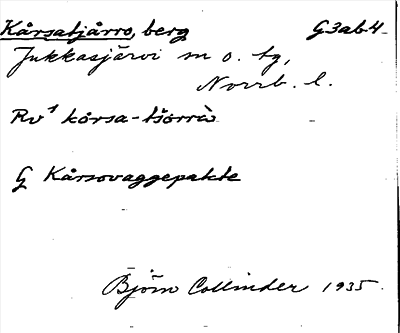 Kårsatjårro, berg G3ab4
Jukkasjärvi m o. tg,
Norrb. l.
Rv¹ kårsa-tšårrà
G Kårsovaggepakte
Björn Collinder 1935.